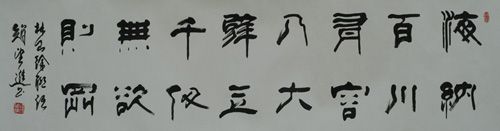 海納
百川
有容
乃大
壁立
千仞
無欲
則剛
林則徐聯語
趙望進書